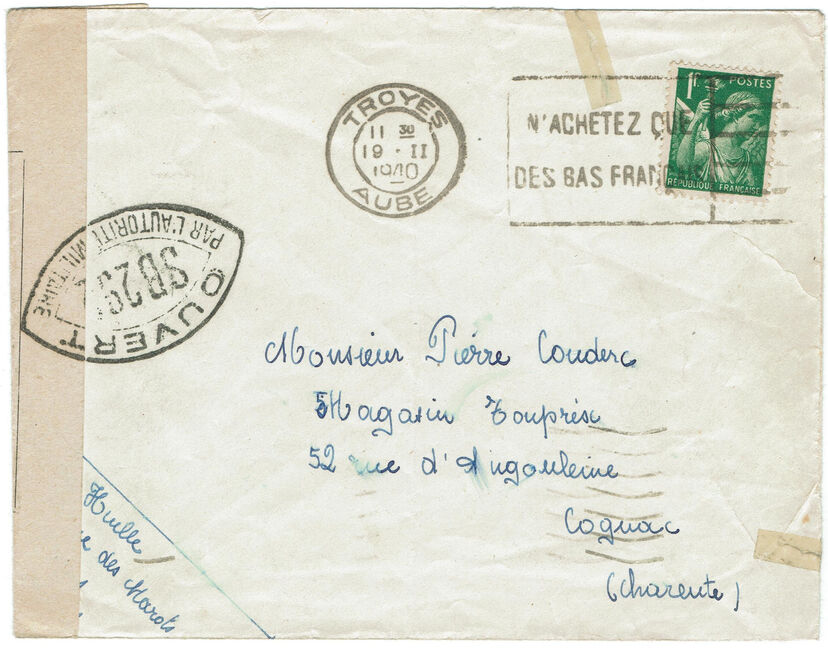 TROYES
11 30
19 · II
1940
AUBE
N'ACHETEZ QUE
DES BAS FRANÇAIS
1F. POSTES
RÉPUBLIQUE FRANÇAISE
OUVERT
PAR L'AUTORITÉ MILITAIRE
Monsieur Pierre Couderc
Magasin Touprix
52 rue d'Angoulême
Cognac
(Charente)
Huille
des Marots